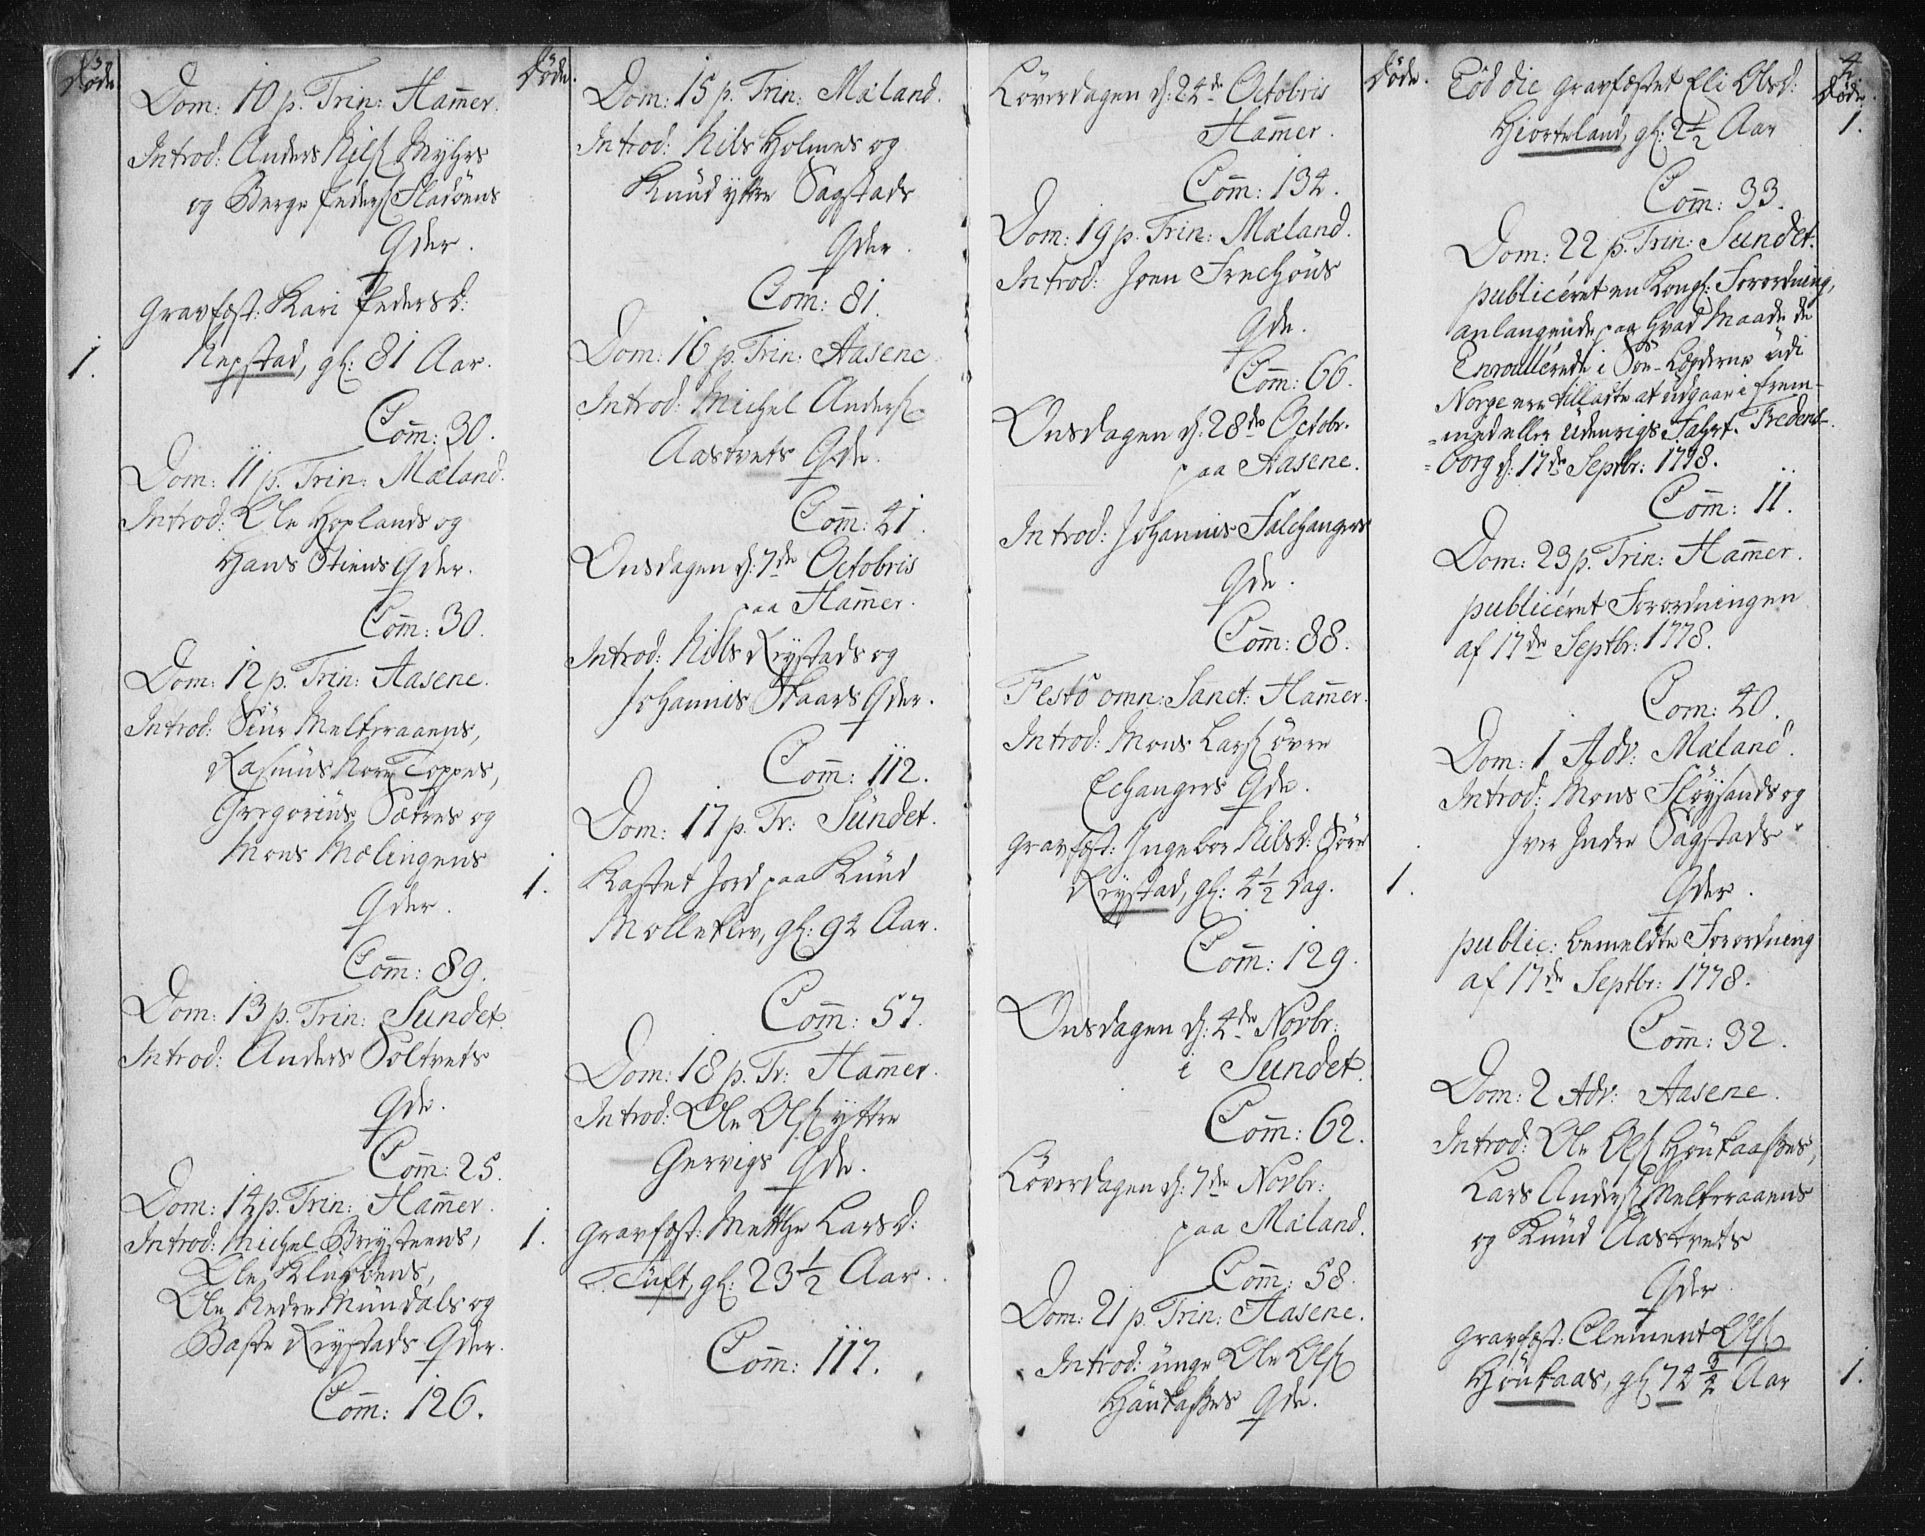 3.
Døde.
Dom: 10 p. Trin: Ham̃er.
Introd: Anders Nilsß Myhrs
og Berge Pedersß Fladöens
Qder.
Gravfæst: Kari Pedersd:
Nepstad, gl: 81 Aar.
1.
Com̃: 30.
Dom: 11 p. Trin: Mæland.
Introd: Ole Hoplands og
Hans Stiens Qder.
Com̃: 30.
Dom: 12 p. Trin: Aasene.
Introd: Siur Meltveraaens,
Rasmus Nore Toppes,
Gregorius Sætres og
Mons Mælingens
Qder.
Com̃: 89.
Dom: 13 p. Trin: Sundet.
Introd: Anders Soltvets
Qde.
Com̃: 25.
Dom: 14 p. Trin: Ham̃er.
Introd: Michel Brysteens,
Ole
Ole Nedre Mundals og
Baste Rystads Qder.
Com̃: 126.
Døde.
Dom: 15 p. Trin: Mæland.
Introd: Nils Holmes og
Knud ÿttre Sagstads
Qder.
Com: 81.
Dom: 16 p. Trin: Aasene
Introd: Michel Andersß
Aastvets Qde.
Com̃: 41.
Onsdagen d: 7de Octobris
paa Ham̃er.
Introd: Nils Rystads og
Johannis Skaars Qder.
Com̃: 112.
Dom: 17 p. Tr: Sundet.
1.
Kastet Jord paa Knud
Molleklev, gl: 94 Aar.
Com̃: 57.
Dom: 18 p. Tr: Ham̃er.
Introd: Ole Olsß ÿttre
Gervigs Qde.
1.
Gravfæst: Metthe Larsd:
Tuft, gl: 23½ Aar.
Com̃: 117.
Løverdagen d: 24de Octobris
Ham̃er.
Com̃: 134.
Dom: 19 p. Trin: Mæland.
Introd: Joen Frechous
Qde.
Com̃: 66.
Onsdagen d: 28de Octobr.
paa Aasene.
Introd: Johannis Falchangers
Qde.
Com̃: 88.
Festo omn: Sanct: Ham̃er.
Introd: Mons Larsß övre
Echangers Qde.
Gravfæst: Ingebor Nilsd: Söre
Rystad, gl: 4½ Dag.
1.
Com̃: 129.
Onsdagen d: 4de Novbr:
i Sundet.
Com̃: 62.
Løverdagen d: 7de Novbr:
paa Mæland.
Com̃: 58.
Dom: 21 p. Trin: Aasene.
Introd: unge Ole Olsß
Höukaßes Qde.
Døde.
4.
Døde.
Eod die gravfæstet Eli Olsd:
Hiorteland, gl: 2½ Aar
1.
Com̃: 33.
Dom: 22 p. Trin: Sundet.
publiceret en Kongl: Forordning,
anlangende paa hvad Maade de
Enroullerede i Söe-Lægderne udi
Norge ere tilladte at udgaae i frem-
=med eller Udenrigs Fahrt. Fredens-
=borg d: 17de Septbr: 1778.
Com̃: 11.
Dom: 23 p. Trin: Ham̃er.
publiceret Forordningen
af 17de Septbr: 1778.
Com: 40.
Dom: 1 Adv: Mæland.
Introd: Mons Flöysands og
Iver Indre Sagstads
Qder.
public: bemeldte Forordning
af 17de Septbr: 1778.
Com̃: 32.
Dom: 2 Adv: Aasene.
Introd: Ole Olsß Höukaaßes,
Lars Andersß Meltveraaens
og Knud Aastvets
Qder
Gravfæst: Clement Olsß
Höukaas, gl 74¾ Aar
1.